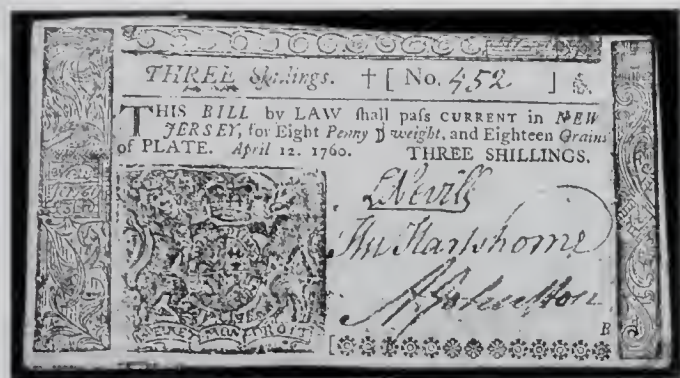 THREE Skillings. † [ No. 452 ]
THIS BILL by LAW ſhall paſs CURRENT in NEW
JERSEY, for Eight Penny weight, and Eighteen Grains
of PLATE. April 12. 1760. THREE SHILLINGS.
SNevill
Hartshorne
Johnston
B